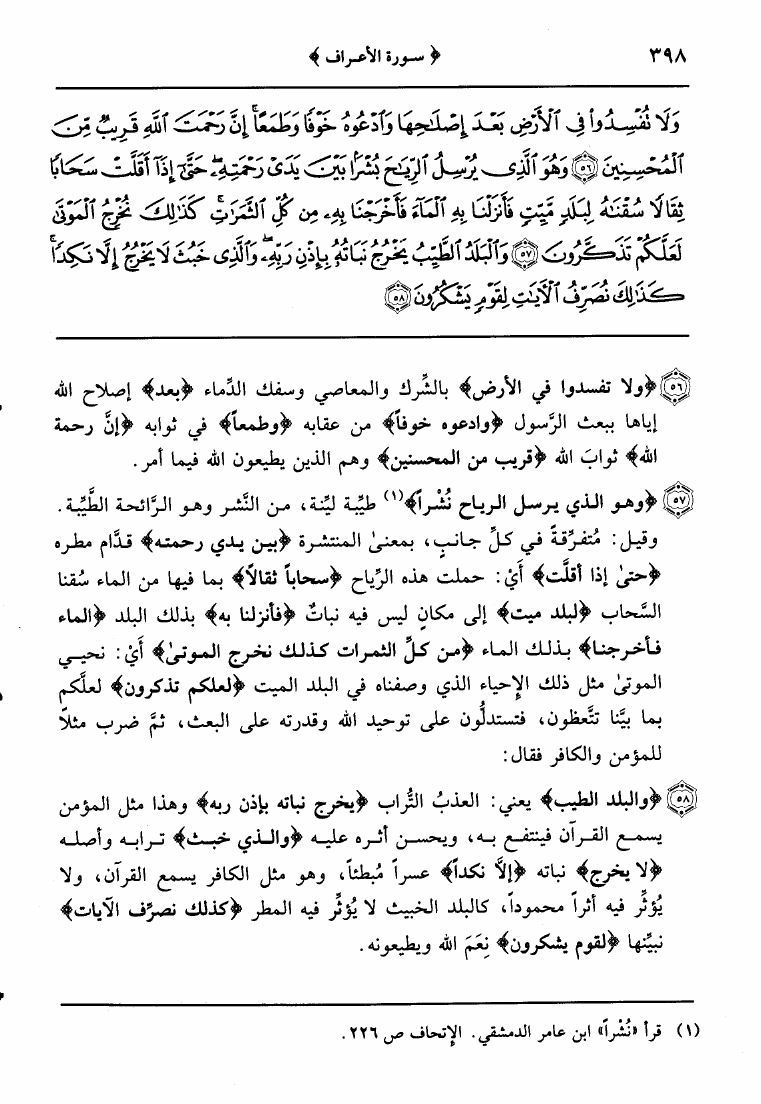 ٣٩٨ ﴿ سورة الأعراف ﴾
وَلَا نُفْسِدُوا۟ فِى ٱلْأَرْضِ بَعْدَ إِصْلَـٰحِهَا وَٱدْعُوهُ خَوْفًا وَطَمَعًا ۚ إِنَّ رَحْمَتَ ٱللَّهِ قَرِيبٌ مِّنَ
ٱلْمُحْسِنِينَ ﴿٥٦﴾ وَهُوَ ٱلَّذِى يُرْسِلُ ٱلرِّيَـٰحَ بُشْرًۢا بَيْنَ يَدَىْ رَحْمَتِهِۦ ۖ حَتَّىٰٓ إِذَآ أَقَلَّتْ سَحَابًا
ثِقَالًا سُقْنَـٰهُ لِبَلَدٍ مَّيِّتٍ فَأَنزَلْنَا بِهِ ٱلْمَآءَ فَأَخْرَجْنَا بِهِۦ مِن كُلِّ ٱلثَّمَرَٰتِ ۚ كَذَٰلِكَ نُخْرِجُ ٱلْمَوْتَىٰ
لَعَلَّكُمْ تَذَكَّرُونَ ﴿٥٧﴾ وَٱلْبَلَدُ ٱلطَّيِّبُ يَخْرُجُ نَبَاتُهُۥ بِإِذْنِ رَبِّهِۦ ۖ وَٱلَّذِى خَبُثَ لَا يَخْرُجُ إِلَّا نَكِدًا ۚ
كَذَٰلِكَ نُصَرِّفُ ٱلْـَٔايَـٰتِ لِقَوْمٍ يَشْكُرُونَ ﴿٥٨﴾
﴿٥٦﴾ ﴿ولا تفسدوا في الأرض﴾ بالشِّرك والمعاصي وسفك الدِّماء ﴿بعد﴾ إصلاح الله
إياها ببعث الرَّسول ﴿وادعوه خوفاً﴾ من عقابه ﴿وطمعاً﴾ في ثوابه ﴿إنَّ رحمة
الله﴾ ثوابَ الله ﴿قريب من المحسنين﴾ وهم الذين يطيعون الله فيما أمر.
﴿٥٧﴾ ﴿وهو الذي يرسل الرياح نُشْراً﴾(١) طيِّبة ليِّنة، من النَّشر وهو الرَّائحة الطَّيِّبة.
وقيل: مُتفرِّقةً في كلِّ جانبٍ، بمعنىٰ المنتشرة ﴿بين يدي رحمته﴾ قدَّام مطره
﴿حتىٰ إذا أقلَّت﴾ أيْ: حملت هذه الرِّياح ﴿سحاباً ثقالاً﴾ بما فيها من الماء سُقنا
السَّحاب ﴿لبلد ميت﴾ إلى مكانٍ ليس فيه نباتٌ ﴿فأنزلنا به﴾ بذلك البلد ﴿الماء
فأخرجنا﴾ بذلك الماء ﴿من كلِّ الثمرات كذلك نخرج الموتىٰ﴾ أيْ: نحيي
الموتىٰ مثل ذلك الإحياء الذي وصفناه في البلد الميت ﴿لعلكم تذكرون﴾ لعلَّكم
بما بيَّنا تتَّعظون، فتستدلُّون على توحيد الله وقدرته على البعث، ثمَّ ضرب مثلاً
للمؤمن والكافر فقال:
﴿٥٨﴾ ﴿والبلد الطيب﴾ يعني: العذبُ التُّراب ﴿يخرج نباته بإذن ربه﴾ وهذا مثل المؤمن
يسمع القرآن فينتفع به، ويحسن أثره عليه ﴿والذي خبث﴾ ترابه وأصله
﴿لا يخرج﴾ نباته ﴿إلَّا نكداً﴾ عسراً مُبطئاً، وهو مثل الكافر يسمع القرآن، ولا
يُؤثِّر فيه أثراً محموداً، كالبلد الخبيث لا يُؤثِّر فيه المطر ﴿كذلك نصرِّف الآيات﴾
نبيِّنها ﴿لقوم يشكرون﴾ نِعَمَ الله ويطيعونه.
(١) قرأ «نُشْراً» ابن عامر الدمشقي. الإتحاف ص ٢٢٦.